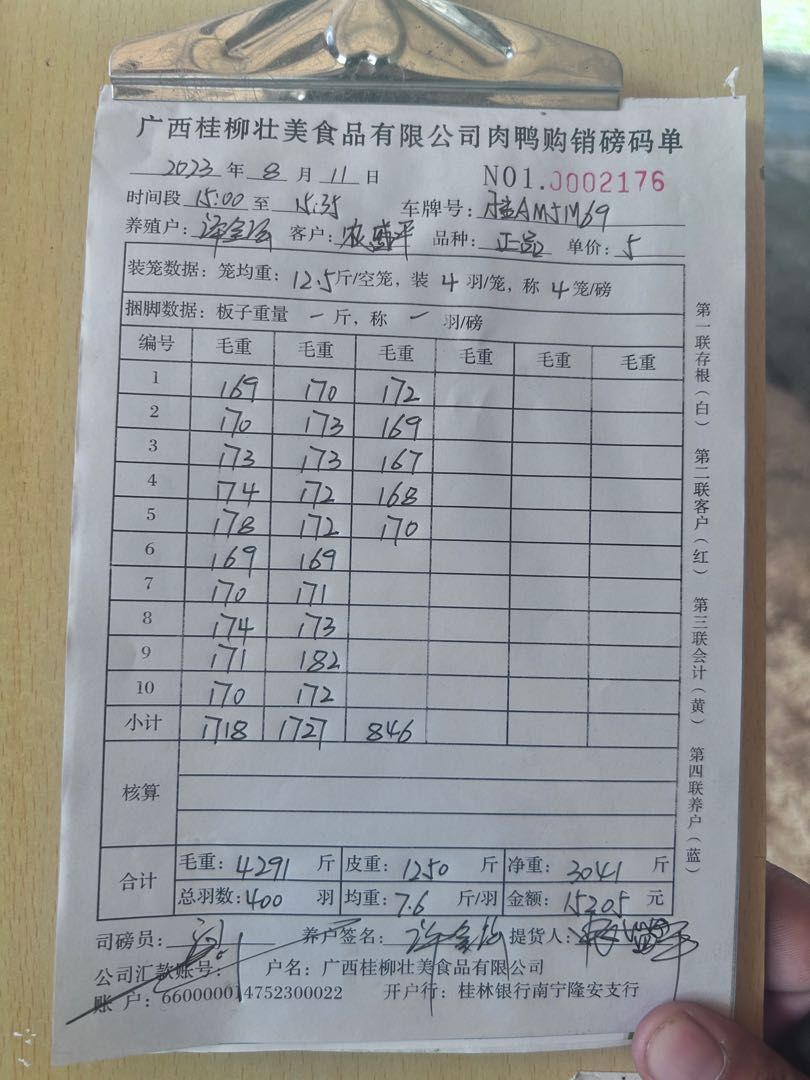 广西桂柳壮美食品有限公司肉鸭购销磅码单
2023 年 8 月 11 日 NO1.0002176
时间段 15:00 至 15:35 车牌号: 桂AM5M69
养殖户: 客户: 农 平 品种: 正品 单价: 5
装笼数据: 笼均重: 12.5斤/空笼, 装 4 羽/笼, 称 4 笼/磅
捆脚数据: 板子重量 一 斤, 称 一 羽/磅
编号 毛重 毛重 毛重 毛重 毛重 毛重
1 169 170 172
2 170 173 169
3 173 173 167
4 174 172 168
5 178 172 170
6 169 169
7 170 171
8 174 173
9 171 182
10 170 172
小计 1718 1727 846
核算
合计 毛重: 4291 斤 皮重: 1250 斤 净重: 3041 斤
总羽数: 400 羽 均重: 7.6 斤/羽 金额: 15205 元
司磅员: 养户签名: 提货人:
公司汇款账号: 户名: 广西桂柳壮美食品有限公司
账 户: 660000014752300022 开户行: 桂林银行南宁隆安支行
第一联存根(白) 第二联客户(红) 第三联会计(黄) 第四联养户(蓝)